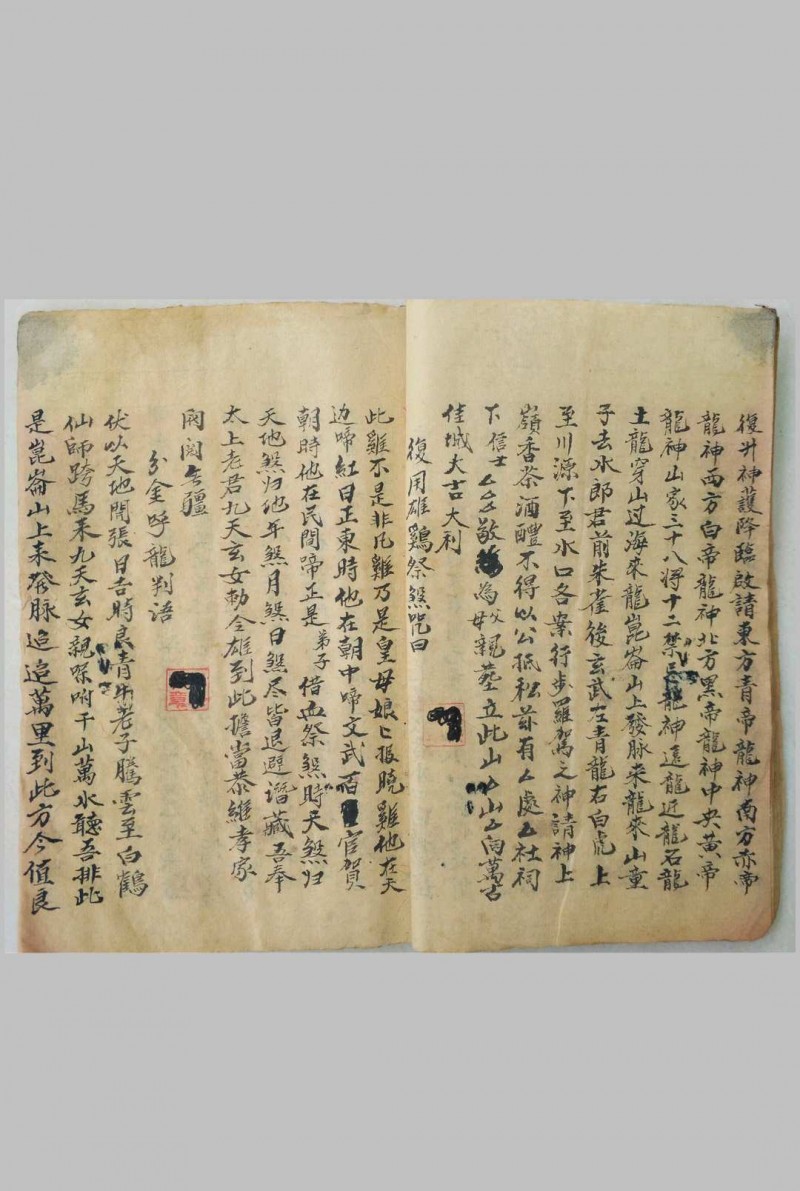 復升神護降臨啟請東方青帝龍神南方赤帝
龍神西方白帝龍神北方黑帝龍神中央黃帝
龍神山家三十八將十二禁龍神遠龍近龍石龍
土龍穿山过海來龍崑崙山上發脉来龍來山童
子去水郎君前朱雀後玄武左青龍右白虎上
至川源下至水口各案行步羅駕之神請神上
嶺香茶酒醴不得以公抵私玆有厶處厶社祠
下信士厶厶敬為父母親塟立此山山厶向萬古
佳城大吉大利
復用雄鷄祭煞咒曰
此雞不是非凡雞乃是皇母娘匕报曉雞他在天
边啼紅日正東時他在朝中啼文武百官賀
朝時他在民間啼正是弟子借血祭煞時天煞归
天地煞归地年煞月煞日煞尽皆退避潛藏吾奉
太上老君九天玄女勅令雄到此擔當恭維孝家
閤闔無疆
分金呼龍判语
伏以天地開張日吉時良青牛老子騰雲至白鶴
仙師跨馬来九天玄女親啝咐千山萬水聽吾排此
是崑崙山上来發脉迢迢萬里到此方今值良